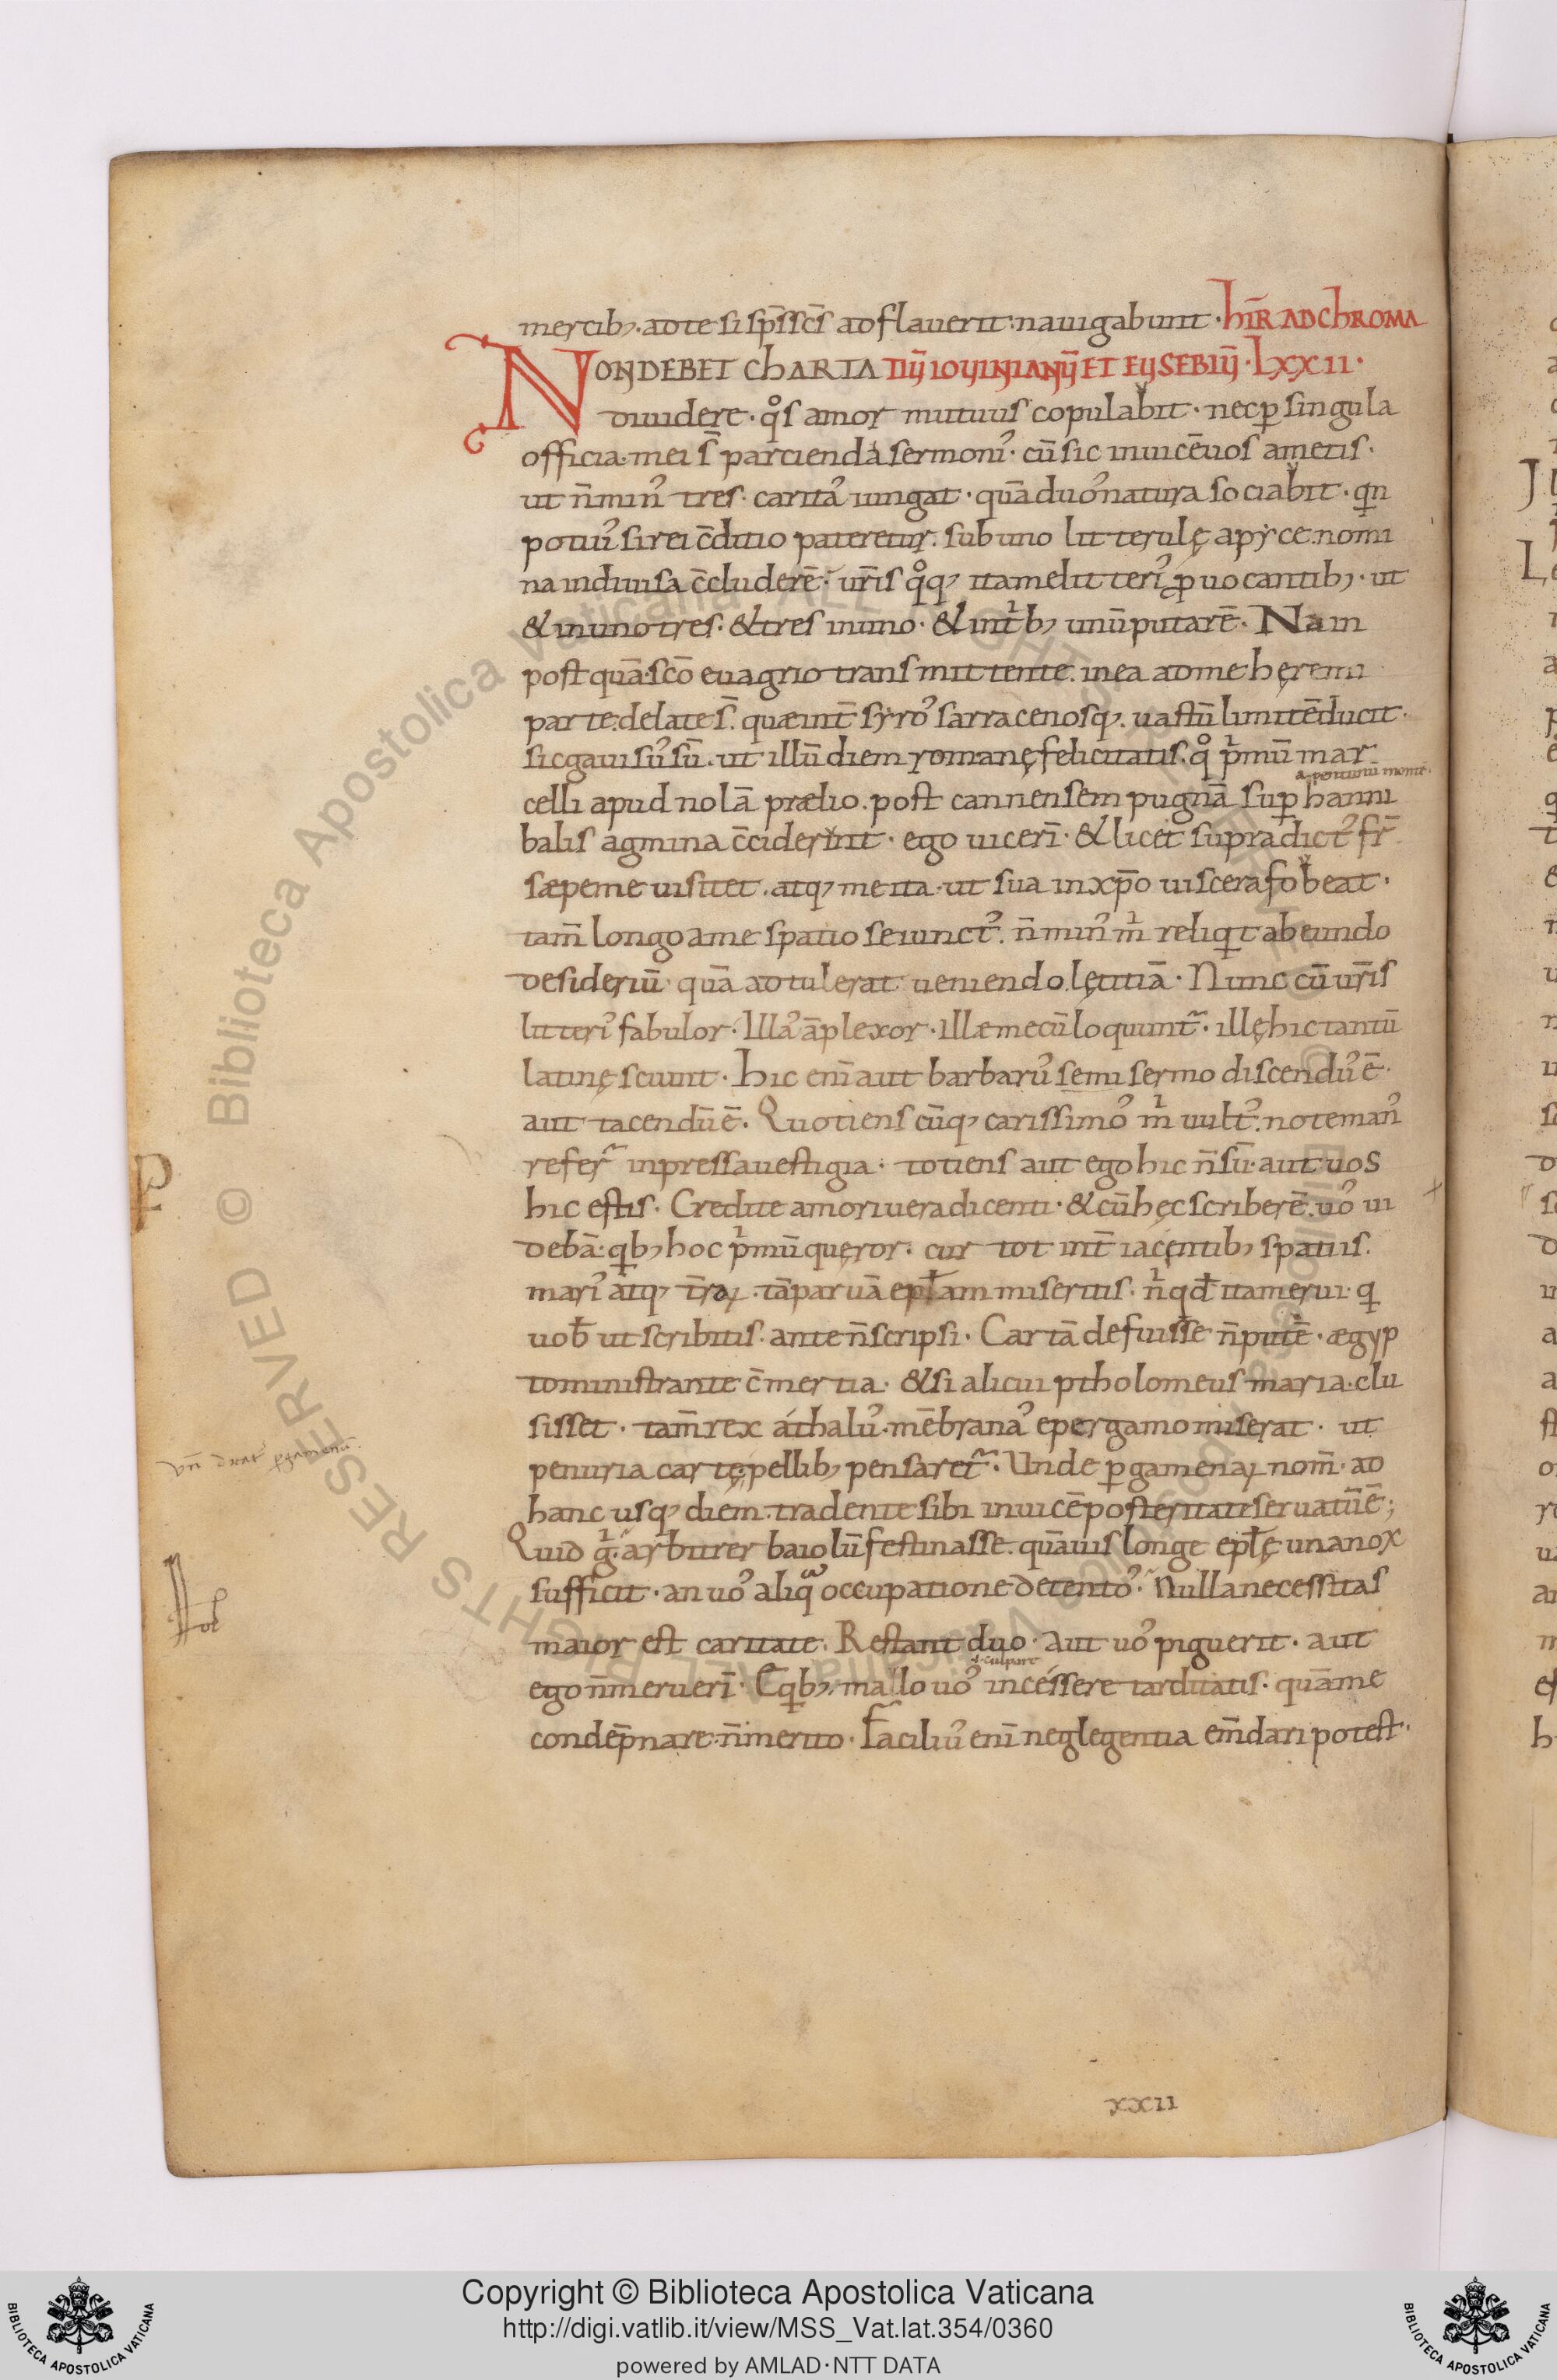 mercib; · ad te si sp̄s sc̄s adflauerit · nauigabunt · hīR AD ChROMA
NON DEBET ChARTA TIŪ IOUINIANŪ ET EUSEBIŪ · LXXII ·
diuidere · qͦs amor mutuus copulabit · nec ꝑ singula
officia · mei s̄ parcienda sermoni᾽ · cū sic inuicē uos ametis ·
ut n̄ min᾽ tres · carita᾽ iungat · quā duo᾽ natura sociabit · qn
potiu᾽ si rei c̄ditio pateretur · sub uno litterulę apyce · nomi
na indiuisa c̄cluderē · ur̄is qͦq; ita me litteri᾽ ꝓuocantib; · ut
& in uno tres · & tres in uno · & in trib; unū putarē · Nam
postquā · sc̄o euagrio transmittente · in ea ad me heremi
parte · delate s̄ · quæ int̄ syro᾽ sarracenosq; · uastū limitē ducit ·
sic gauisu᾽ sū · ut illū diem romanę felicitatis · qͦ pͥmū mar
a pentinū monte ·
celli apud nolā prælio · post cannensem pugnā suꝑ hanni
balis agmina c̄ciderint · ego uicerī · & licet supradict᾽ fr̄
sæpe me uisitet · atq; me ita · ut sua in xp̄o uiscera fobeat ·
tam̄ longo a me spatio seiunct᾽ · n̄ min᾽ mͥ reliqͥt abeundo
desideriū · quā adtulerat ueniendo lętitiā · Nunc cū ur̄is
litteri᾽ fabulor · Illa᾽ āplexor · illæ mecū loquunt᷒ · illę hic tantū
latinę sciunt · Hic enī aut barbaru᾽ semisermo discendu᾽ ē ·
aut tacendū ē · Quotienscūq; carissimo᾽ mͥ uult᾽ · note man᾽
refer᷒ inpressa uestigia · totiens aut ego hic n̄ sū · aut uos
hic estis · Credite amori uera dicenti · & cū hęc scriberē · uo᾽ ui
debā · qͥb; hoc pͥmū quęror · cur tot int̄ iacentib; spatiis ·
mari᾽ atq; t̄raꝝ · tā paruā epl̄am miseritis · nͥ qd̄ ita merui · qͥ
uob̄ ut scribitis · ante n̄ scripsi · Cartā defuisse n̄ putē · ægyp
to ministrante c̄mertia · & si alicui ptholomeus maria · clu
sisset · tam̄ rex athalu᾽ · mēbrana᾽ e pergamo miserat · ut
penuria cartę pellib; pensaret᷒ · Unde ꝑgamenaꝝ nom̄ · ad
hanc usq; diem · tradente sibi inuicē posteritate seruatū ē ;
Quid gͥ · arbitrer baiolū festinasse · quāuis longe epl̄ę una nox
sufficit · an uo᾽ aliqᵃ occupatione detento᾽ · Nulla necessitas
maior est caritate · Restant duo · aut uo᾽ piguerit · aut
ł culpare
ego n̄ meruerī · Eqͥb; · mallo uo᾽ incessere tarditatis · quā me
condēpnare · n̄ merito · Faciliu᾽ enī neglegentia em̄dari potest ·
xxii
Copyright © Biblioteca Apostolica Vaticana
http://digi.vatlib.it/view/MSS_Vat.lat.354/0360
powered by AMLAD·NTT DATA
BIBLIOTECA APOSTOLICA VATICANA
BIBLIOTECA APOSTOLICA VATICANA